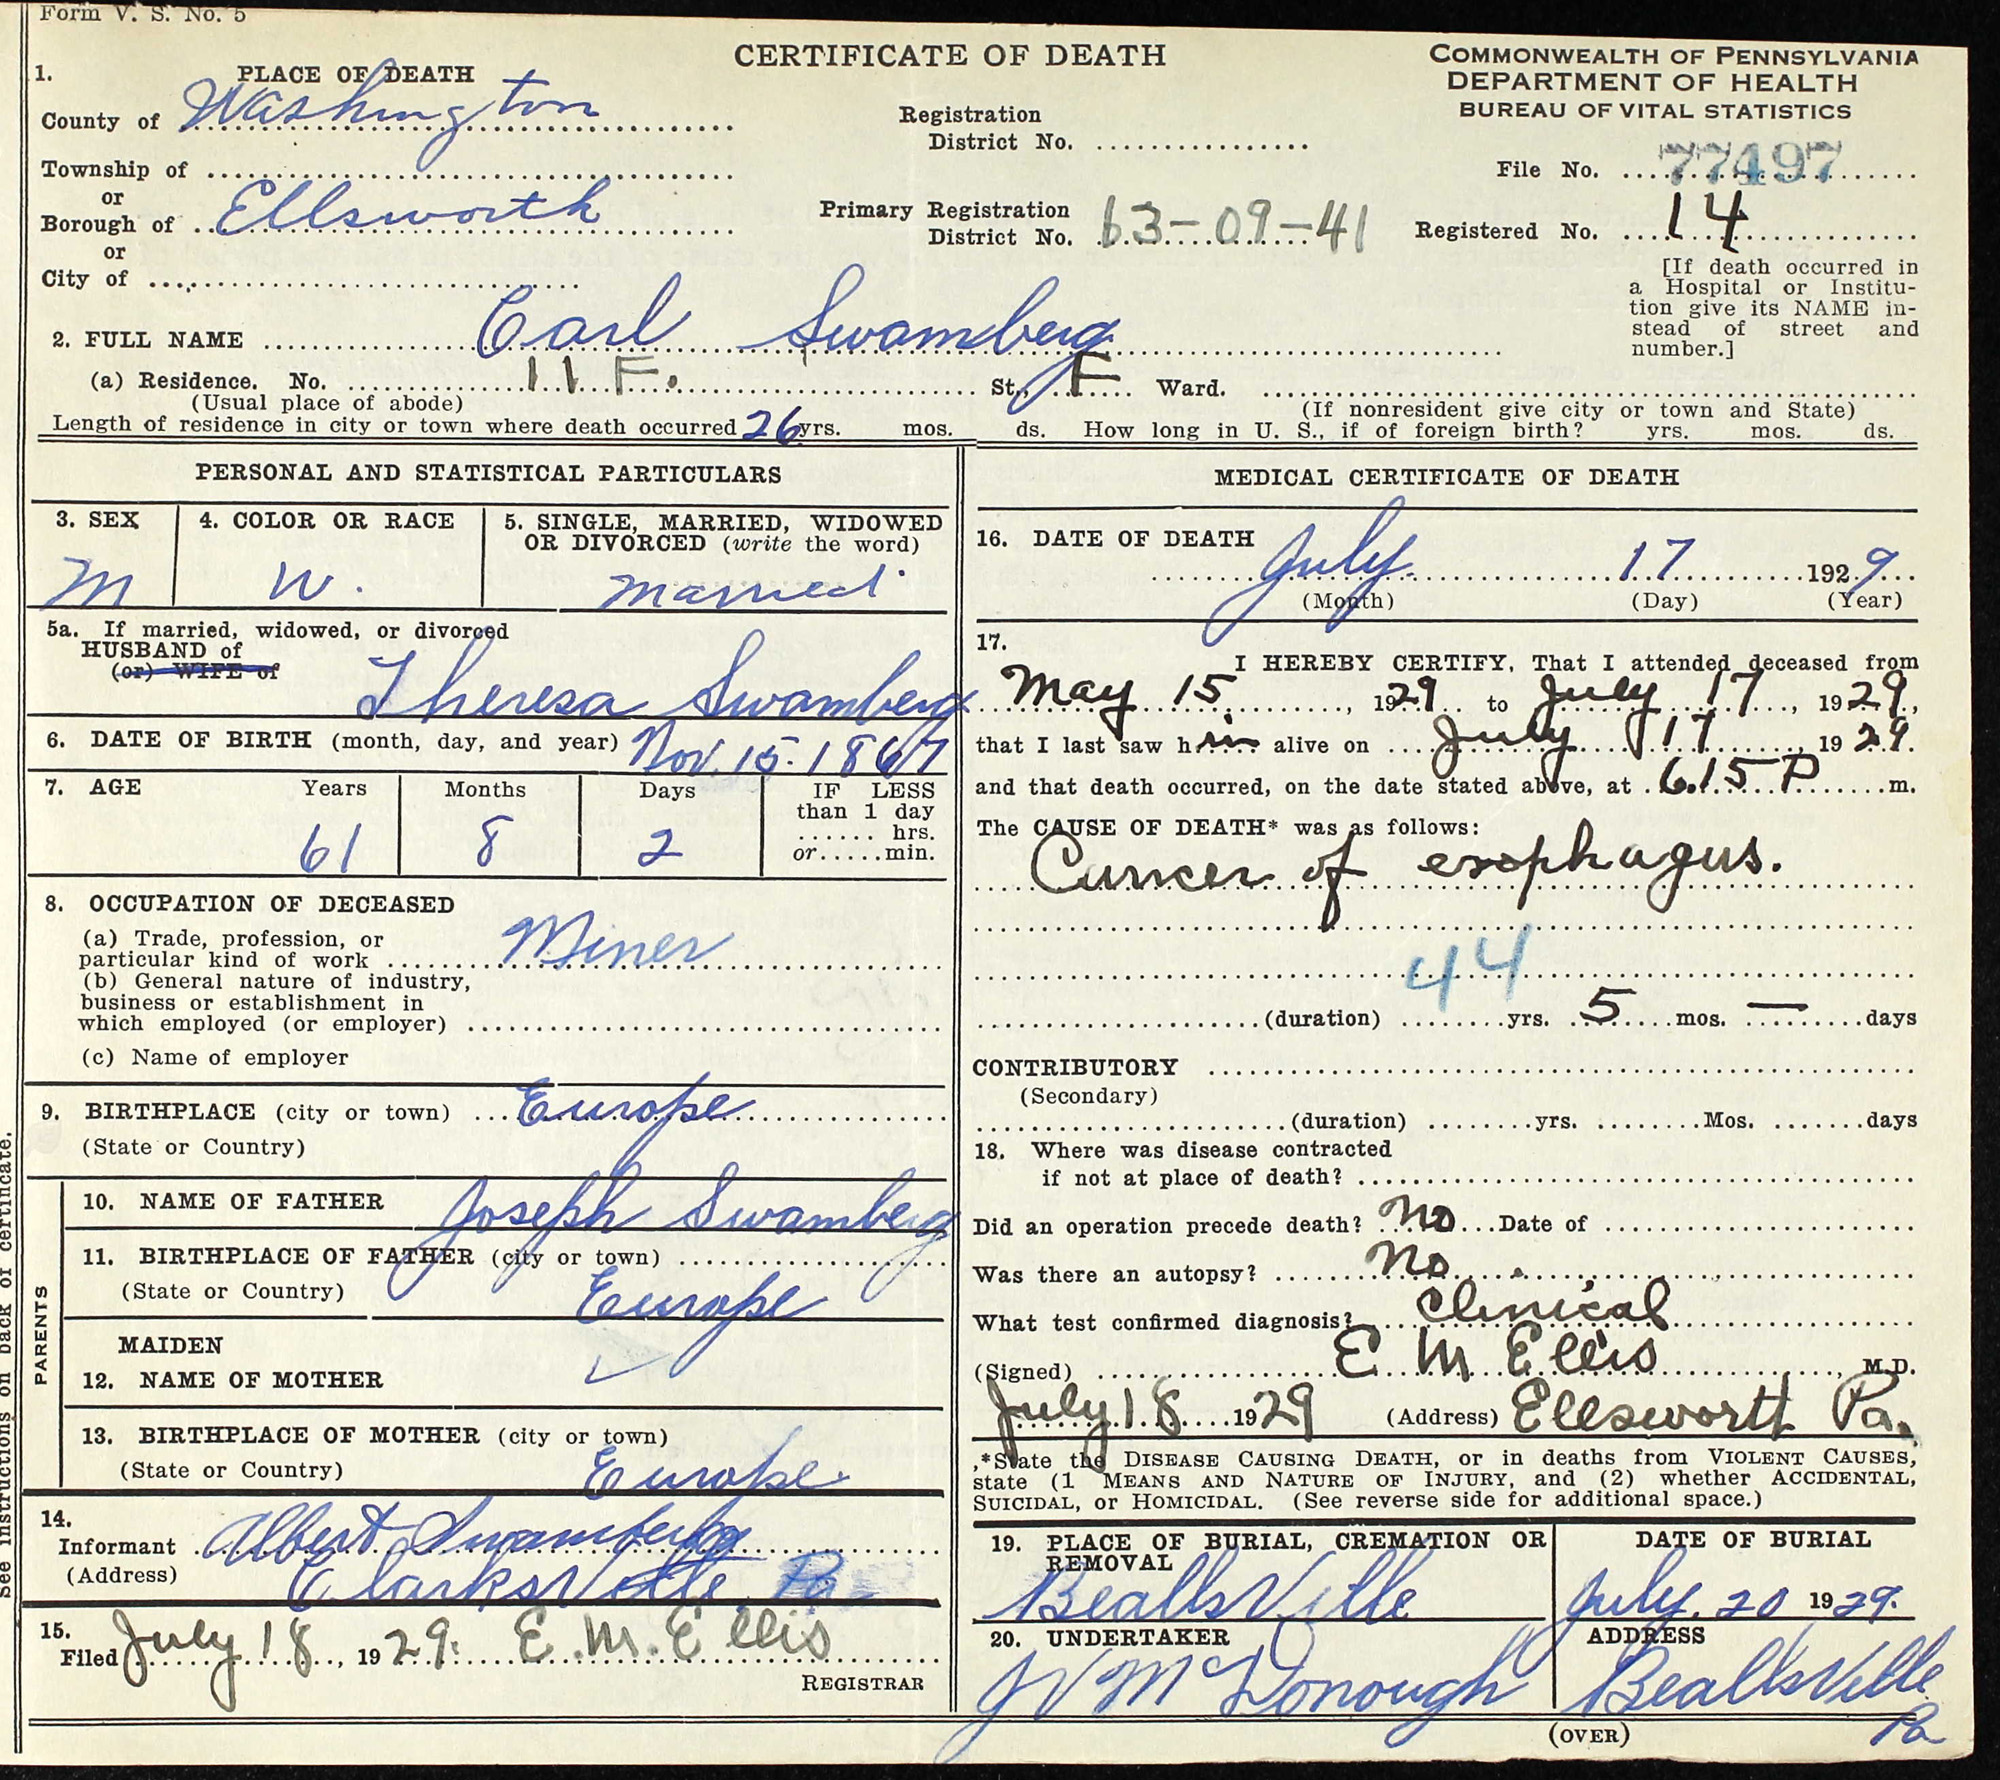 Form V. S. No. 5
CERTIFICATE OF DEATH
COMMONWEALTH OF PENNSYLVANIA
DEPARTMENT OF HEALTH
BUREAU OF VITAL STATISTICS
1. PLACE OF DEATH
County of Washington
Township of
or
Borough of Ellsworth
or
City of
Registration
District No.
Primary Registration
District No. 63-09-41
File No. 77497
Registered No. 14
[If death occurred in
a Hospital or Institu-
tion give its NAME in-
stead of street and
number.]
2. FULL NAME Carl Swamberg
(a) Residence. No. 11 F. St., F Ward.
(Usual place of abode) (If nonresident give city or town and State)
Length of residence in city or town where death occurred 26 yrs. mos. ds. How long in U. S., if of foreign birth? yrs. mos. ds.
PERSONAL AND STATISTICAL PARTICULARS
3. SEX
M
4. COLOR OR RACE
W.
5. SINGLE, MARRIED, WIDOWED
OR DIVORCED (write the word)
Married
5a. If married, widowed, or divorced
HUSBAND of
(or) WIFE of
Theresa Swamberg
6. DATE OF BIRTH (month, day, and year) Nov. 15. 1867
7. AGE Years Months Days IF LESS
than 1 day
...... hrs.
or.....min.
61 8 2
8. OCCUPATION OF DECEASED
(a) Trade, profession, or
particular kind of work Miner
(b) General nature of industry,
business or establishment in
which employed (or employer)
(c) Name of employer
9. BIRTHPLACE (city or town) Europe
(State or Country)
PARENTS
10. NAME OF FATHER Joseph Swamberg
11. BIRTHPLACE OF FATHER (city or town)
(State or Country) Europe
MAIDEN
12. NAME OF MOTHER
13. BIRTHPLACE OF MOTHER (city or town)
(State or Country) Europe
14.
Informant Albert Swamberg
(Address) Clarksville Pa
15.
Filed July 18, 1929. E. M. Ellis
REGISTRAR
See instructions on back of certificate.
MEDICAL CERTIFICATE OF DEATH
16. DATE OF DEATH
July 17 1929
(Month) (Day) (Year)
17.
I HEREBY CERTIFY, That I attended deceased from
May 15, 1929 to July 17, 1929,
that I last saw him alive on July 17 1929.
and that death occurred, on the date stated above, at 6.15 P m.
The CAUSE OF DEATH* was as follows:
Cancer of esophagus.
44
(duration) yrs. 5 mos. — days
CONTRIBUTORY
(Secondary)
(duration) yrs. Mos. days
18. Where was disease contracted
if not at place of death?
Did an operation precede death? No Date of
Was there an autopsy? No
What test confirmed diagnosis? Clinical
(Signed) E M Ellis, M.D.
July 18 1929 (Address) Ellsworth Pa.
*State the DISEASE CAUSING DEATH, or in deaths from VIOLENT CAUSES,
state (1 MEANS AND NATURE OF INJURY, and (2) whether ACCIDENTAL,
SUICIDAL, or HOMICIDAL. (See reverse side for additional space.)
19. PLACE OF BURIAL, CREMATION OR
REMOVAL
Beallsville
DATE OF BURIAL
July. 20 1929.
20. UNDERTAKER
McDonough
ADDRESS
Beallsville
Pa
(OVER)